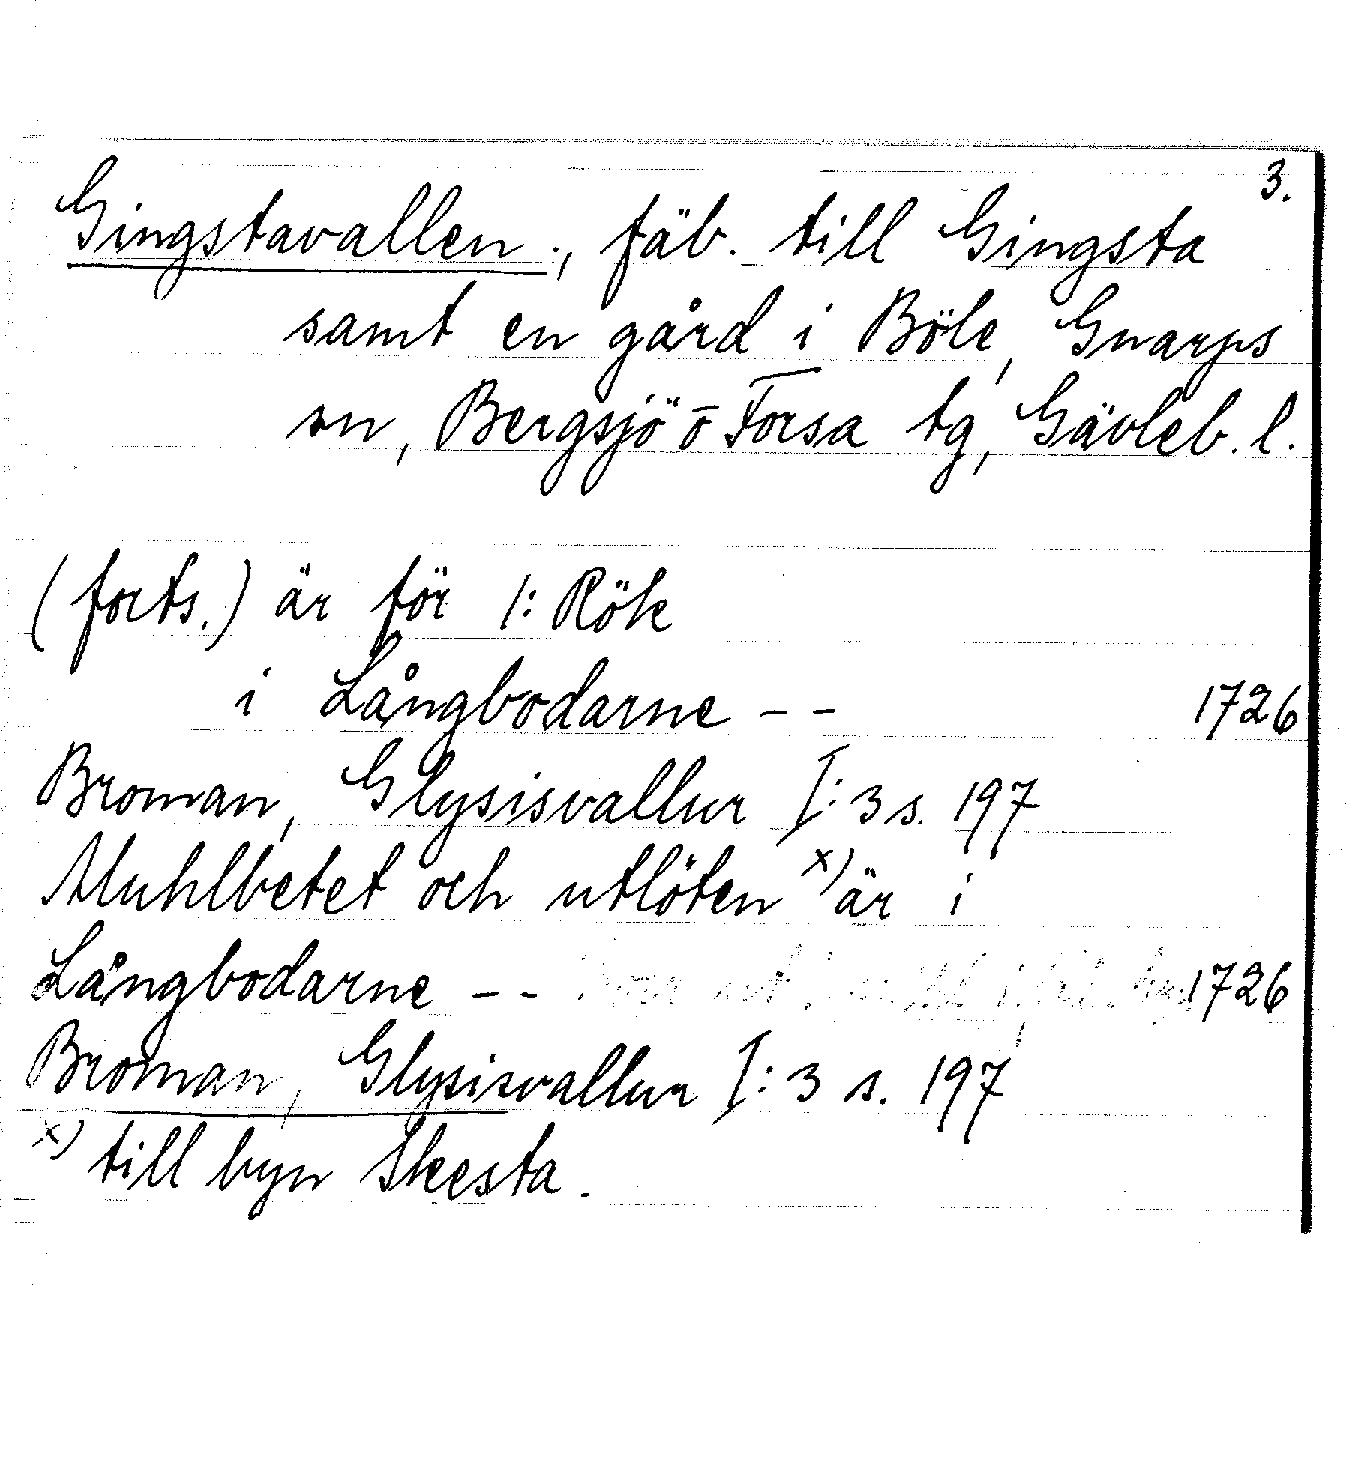 3.
Gingstavallen, fäb. till Gingsta
samt en gård i Böle, Gnarps
sn, Bergsjö o Forsa tg, Gävleb. l.
(forts.) är för 1: Rök
i Långbodarne – – 1726
Broman, Glysisvallur I: 3 s. 197
Muhlbetet och utlöten x) är i
Långbodarne – – 1726
Broman, Glysisvallur I: 3 s. 197
x) till byn Skesta.